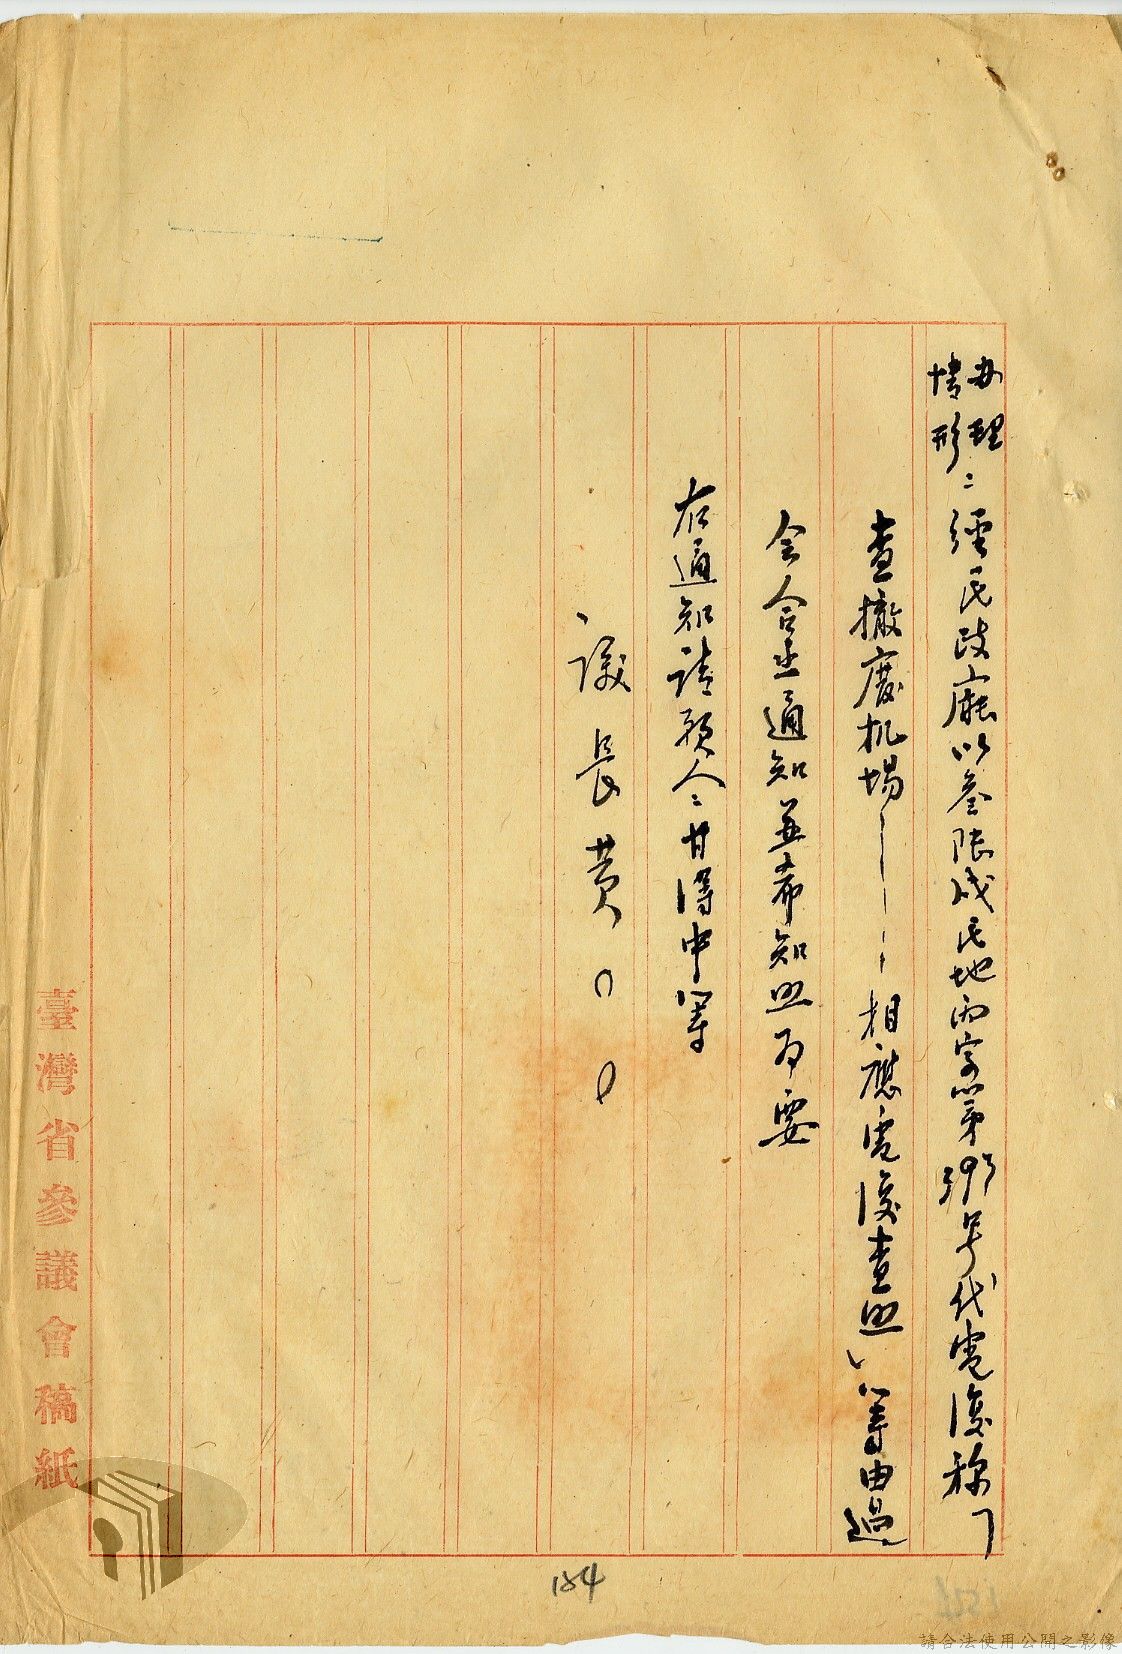 办理情形：經民政廳以叁陷戌民地丙字第393号代電復称「
查撤廢机場——相應電復查照」等由過
会合亟通知並希知照为要
右通知請願人：甘得中等
議長黄○○
臺灣省參議會稿紙
184
請合法使用公開之影像